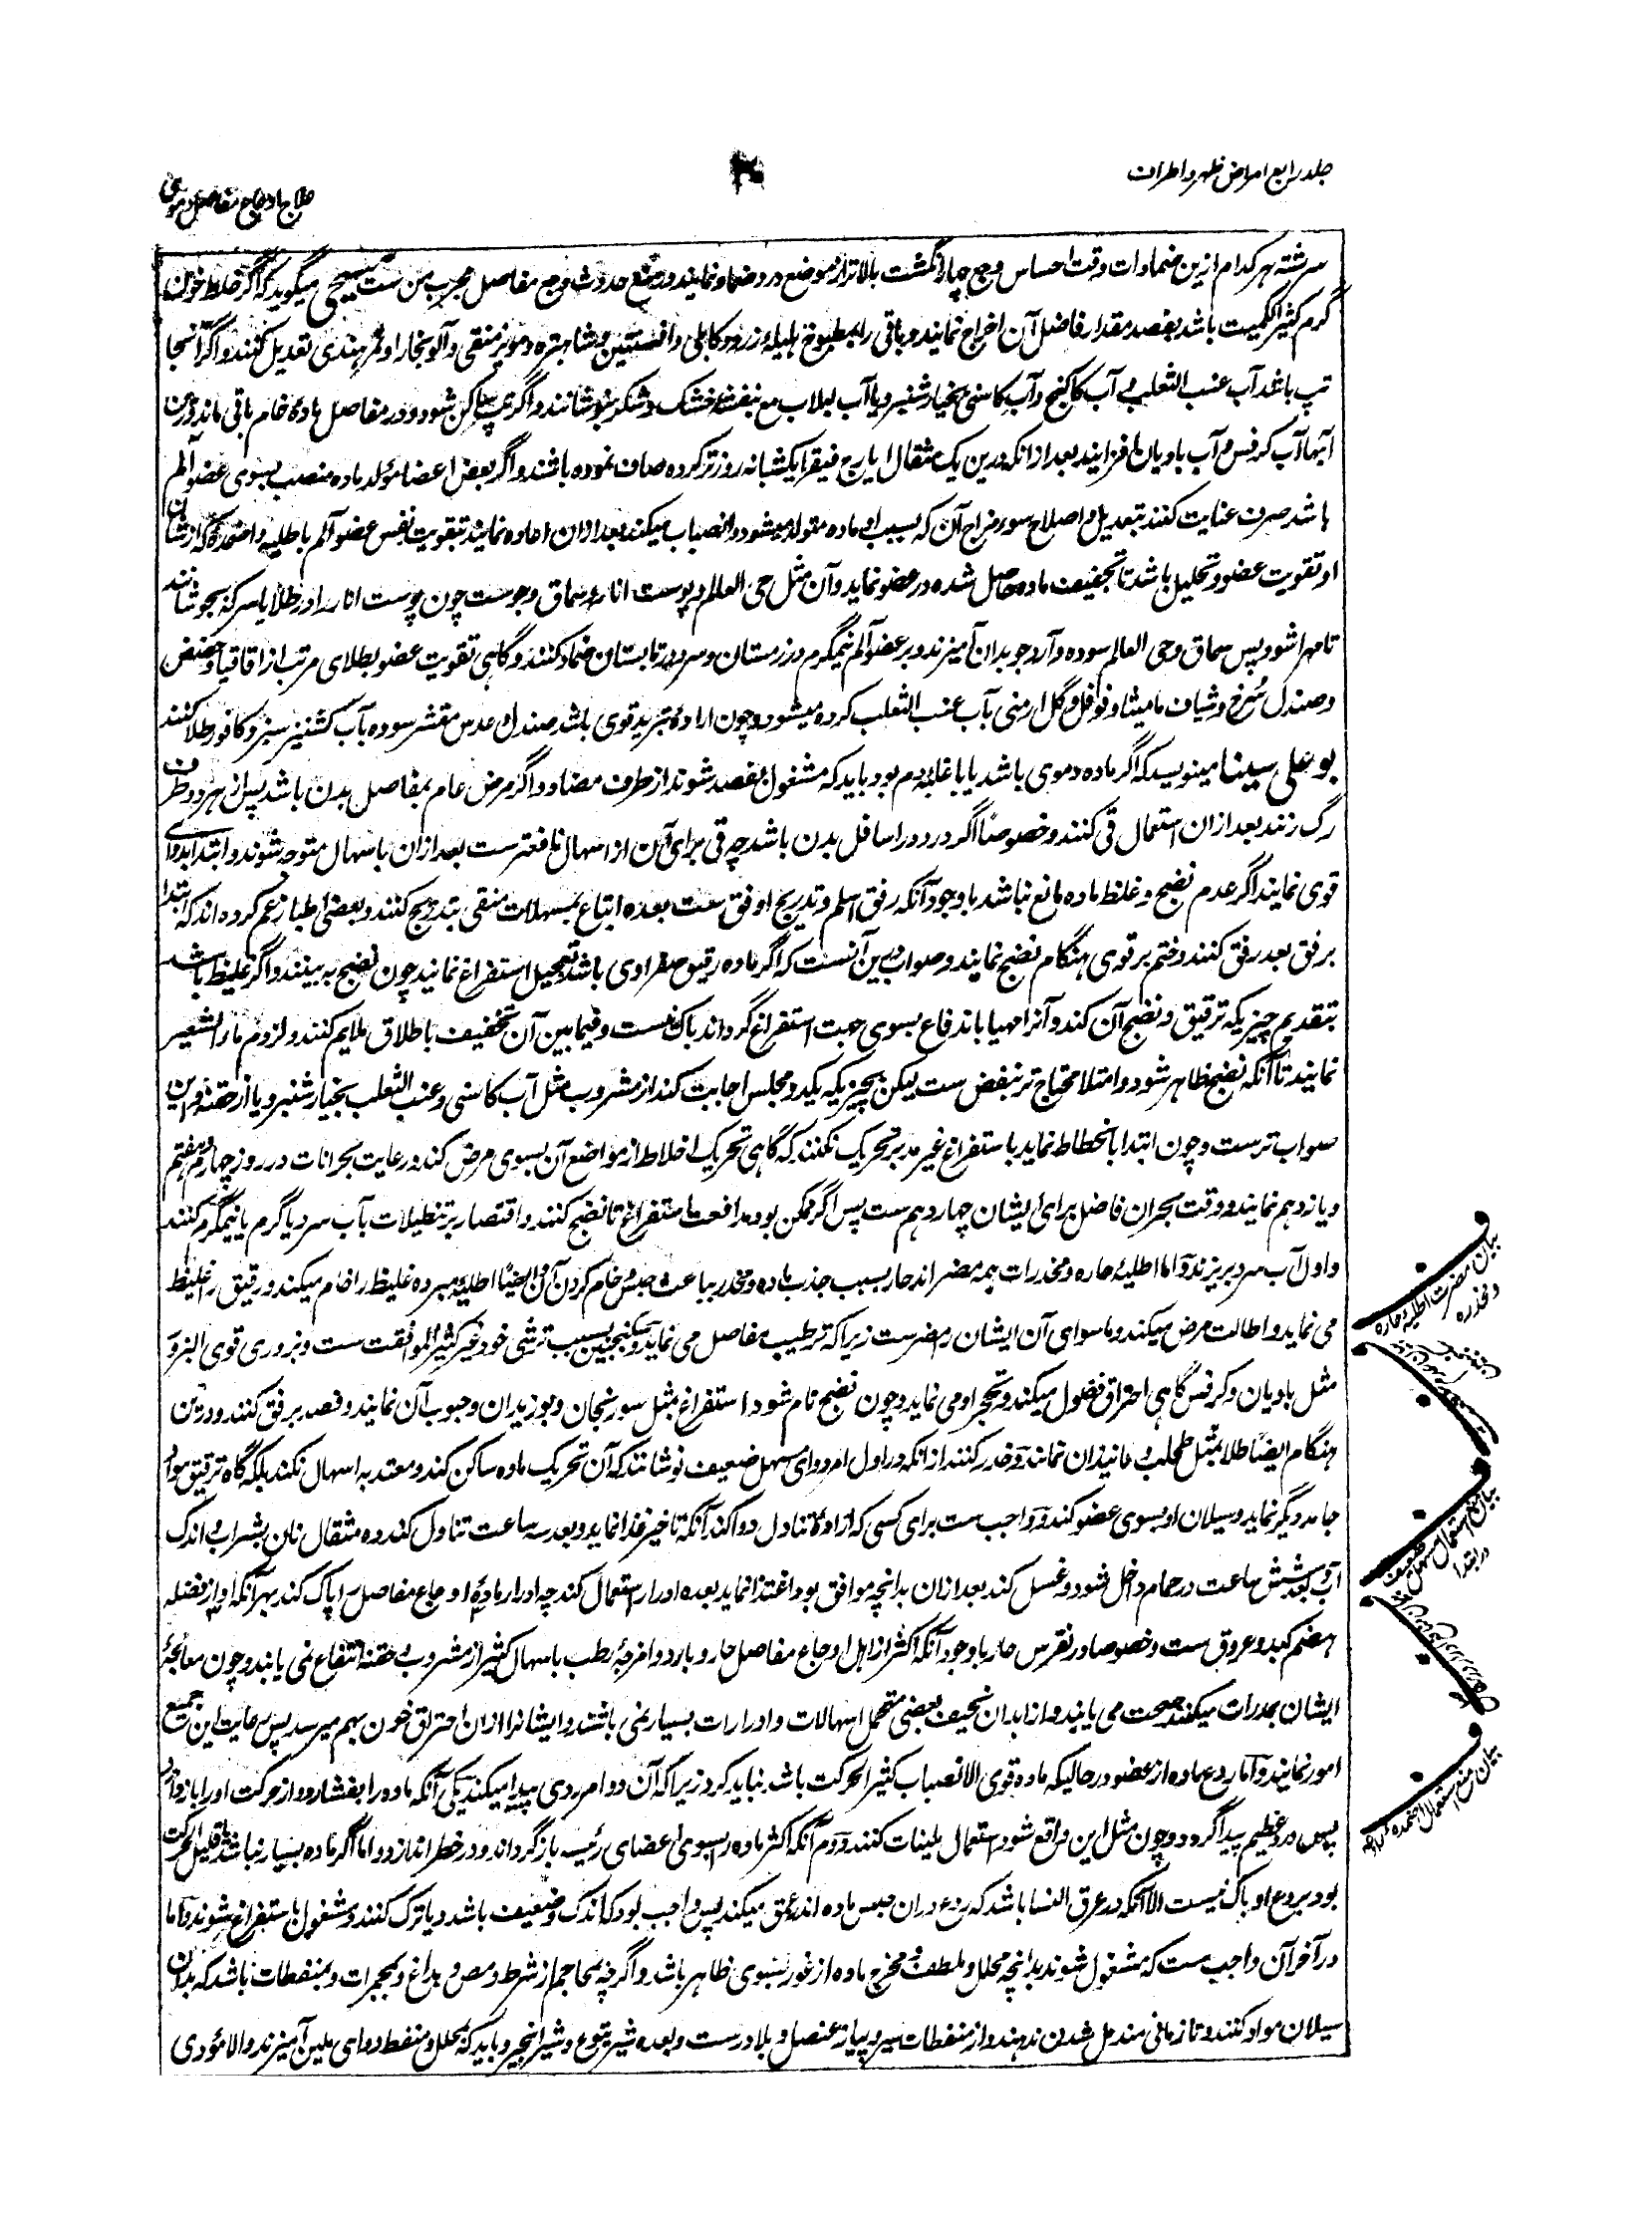 جلد رابع امراض ظهر و اطراف
علاج اوجاع مفاصل دموی
سرشته هر کدام ازین ضمادات وقت احساس وجع چهار انگشت بالاتر از موضع درد ضماد نمایند و در منع حدوث وجع مفاصل مجرب من ست مسیحی میگوید که اگر خلط خون
گرم کثیر الکمیت باشد بفصد مقدار فاضل آن اخراج نمایند و باقی را بمطبوخ هلیله زرد و کابلی و افسنتین و شاهتره و مویز منقی و آلو بخارا و تمر هندی تعدیل کنند و اگر آنجا
تپ باشد آب عنب الثعلب و آب کاکنج و آب کاسنی بخیارشنبر و یا آب لبلاب مع بنفشه خشک و شکر بنوشانند و اگر تپ ساکن شود و در مفاصل ماده خام باقی ماند درین
آبها آب کرفس و آب بادیان افزایند بعد از انکه درین یک مثقال ایارج فیقرا یکشبانه روز تر کرده صاف نموده باشند و اگر بعض اعضا مولد ماده منصب بسوی عضو آلم
باشد صرف عنایت کنند بتعدیل و اصلاح سوء مزاج آن که بسبب او ماده متولد میشود و انصباب میکند بعد ازان اعاده نمایند بتقویت نفس عضو آلم باطلیه و اضمده که از شان
او تقویت عضو و تحلیل باشد تا تجفیف ماده حاصل شده در عضو نماید و آن مثل حی العالم و پوست انار و سماق و جوست چون پوست انار را در طلا یا سرکه بجوشانند
تا مهرا شود پس سماق و حی العالم سوده و آرد جو بدان آمیزند و بر عضو آلم نیمگرم در زمستان و سرد در تابستان ضماد کنند و گاهی تقویت عضو بطلای مرتب از اقاقیا و حضض
و صندل سرخ و شیاف مامیثا و فوفل و گل ارمنی بآب عنب الثعلب کرده میشود و چون اراده تبرید قوی باشد صندل عدس مقشر سوده بآب کشنیز سبز و کافور طلا کنند
بو علی سینا مینویسد که اگر ماده دموی باشد یا با غلبه دم بود باید که مشغول بفصد شوند از طرف مضاد و اگر مرض عام بمفاصل بدن باشد پس از هر دو طرف
رگ زنند بعد ازان استعمال قی کنند و خصوصاً اگر درد در اسافل بدن باشد چه قی برای آن از اسهال نافعتر ست بعد ازان باسهال متوجه شوند و ابتدا بدوای
قوی نمایند اگر عدم نضج و غلظ ماده مانع نباشد باوجود آنکه رفق اسلم و تدریج اوفق ست بعده اتباع بمسهلات منقی بتدریج کنند و بعضی اطبا زعم کرده اند که ابتدا
برفق بعد رفق کنند و ختم بر قوی هنگام نضج نمایند و صواب این آنست که اگر ماده رقیق صفراوی باشد تعجیل استفراغ نمایند چون نضج به بینند و اگر غلیظ باشد
بتقدیم چیزیکه ترقیق و نضج آن کند و آنرا مهیا باندفاع بسوی جهت استفراغ گرداند باک نیست و فیما بین آن تخفیف باطلاق ملایم کنند و لزوم ماء الشعیر
نمایند تا آنکه نضج ظاهر شود و امتلا محتاج تر بنفض ست لیکن بچیزیکه یکدو مجلس اجابت کند از مشروب مثل آب کاسنی و عنب الثعلب بخیارشنبر و یا از حقنه و این
صواب ترست و چون ابتدا بانحطاط نماید باستفراغ غیر مدبر تحریک نکنند که گاهی تحریک اخلاط از مواضع آن بسوی مرض کند و رعایت بحرانات در روز چهارم و هفتم
و یازدهم نمایند و وقت بحران فاضل برای ایشان چهاردهم ست پس اگر ممکن بود مدافعت استفراغ تا نضج کنند و اقتصار بر تنطیلات بآب سرد یا گرم یا نیمگرم کنند
و اول آب سرد بریزند و اما اطلیه حاره و مخدرات همه مضر اند حار بسبب جذب ماده و مخدر بباعث حبس و خام کردن آن و ایضاً اطلیه مبرده غلیظ را خام میکند و رقیق را غلیظ
می نماید و اطالت مرض میکند و ماسوای آن ایشان را مضرست زیرا که ترطیب مفاصل می نماید و سکنجبین بسبب ترشی خود غیر کثیر الموافقت ست و بزوری قوی البزور
مثل بادیان و کرفس گاهی احتراق فضول میکند و تحجر او می نماید و چون نضج تام شود استفراغ بمثل سورنجان و بوزیدان و حبوب آن نمایند و فصد برفق کنند و درین
هنگام ایضاً طلا بمثل طحلب و مانند آن نمایند و حذر کنند از انکه در اول امر دوای مسهل ضعیف نوشانند که آن تحریک ماده ساکن کند و معتد به اسهال نکند بلکه گاه ترقیق مواد
جامد دیگر نماید و سیلان او بسوی عضو کند و واجب ست برای کسی که اراده تناول دوا کند آنکه تاخیر غذا نماید و بعد سه ساعت تناول کند ده مثقال نان بشراب و اندک
آب و بعد شش ساعت در حمام داخل شود و غسل کند بعد ازان بدانچه موافق بود اغتذا نماید بعده ادرار استعمال کند چه ادرار ماده اوجاع مفاصل را پاک کند بهر آنکه او از فضله
هضم کبد و عروق ست و خصوصا در نقرس حار باوجود آنکه اکثر از اهل اوجاع مفاصل حار و بارد و امزجه رطب باسهال کثیر از مشروب و حقنه انتفاع نمی یابند و چون معالجه
ایشان بمدرات میکنند صحت می یابند و از ابدان نحیف بعضی متحمل اسهالات و ادرارات بسیار نمی باشند و ایشانرا ازان احتراق خون بهم میرسد پس رعایت این جمیع
امور نمایند و اما ردع ماده از عضو درحالیکه ماده قوی الانصباب کثیر الحرکت باشد نباید کرد زیرا که آن دو امر ردی پیدا میکند یکی آنکه ماده را بفشارد و از حرکت او را باز دارد
پس درد عظیم پیدا گردد و چون مثل این واقع شود استعمال ملینات کنند و دوم آنکه اکثر ماده را بسوی اعضای رئیسه باز گرداند و در خطر اندازد و اما اگر ماده بسیار نباشد یا قلیل الحرکت
بود بردع او باک نیست الا آنکه در عرق النسا باشد که ردع دران حبس ماده اندر عمق میکند پس واجب بود که اندک و ضعیف باشد و یا ترک کنند و مشغول باستفراغ شوند و اما
در آخر آن واجب ست که مشغول شوند بدانچه محلل و ملطف و مخرج ماده از غور بسوی ظاهر باشد و اگرچه بمحاجم از شرط و مص و بداغ و بمحمرات و بمنفطات باشد که بدان
سیلان مواد کنند و تا زمانی مندمل شدن ندهند و از منفطات سیر و پیاز عنصل و بلادرست و بعده شیر یتوع و شیر انجیر و باید که بمحلل و منفط دوای ملین آمیزند و الا مؤدی
بیان مضرت اطلیه حاره
و مخدره
بیان منع استعمال مسهل ضعیف
در ابتدا
بیان منع استعمال اضمده